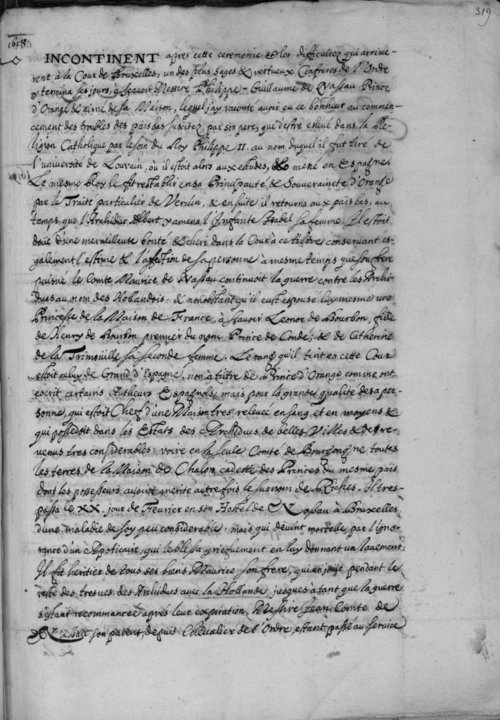 319
1618.
INCONTINENT apres cette ceremonie & les difficultez qui arrive-
rent à la Cour de Bruxelles, un des plus sages & vertueux Confreres de l'Ordre
y termina ses jours, à sçavoir Messire Philippe-Guillaume de Nassau Prince
d'Orange & aisné de sa Maison, lequel j'ay raconté avoir eu ce bonheur au commen-
cement des troubles des païs bas suscitez par son pere, qui d'estre eslevé dans la Re-
ligion Catholique par le soin du Roy Philippe II. au nom duquel il fut tiré de
l'université de Louvain, où il estoit alors aux estudes, & mené en Espagne.
Le mesme Roy le fit restablir en sa Principauté, & Souveraineté d'Orange
par le Traité particulier de Vervin, & ensuite il retourna aux païs bas, au
temps que l'Archiduc Albert y amena l'Infante Isabel sa femme. Il estoit
doüé d'une merveilleuse bonté & cheri dans la Cour à ce tiltre conservant es-
galement l'estime & l'affection de sa personne à mesme temps que son frere
puisné le Comte Maurice de Nassau continuoit la guerre contre les Archi-
ducs au nom des Hollandois. & nonobstant qu'il eust espousé luy mesme une
Princesse de la Maison de France, à sçavoir Leonor de Bourbon, fille
de Henry de Bourbon premier du nom Prince de Condé, & de Catherine
de la Trimouille sa seconde femme. Le rang qu'il tint en cette Cour
estoit celuy de Grand d'Espagne, non à tiltre de Prince d'Orange comme ont
escrit certains Autheurs Espagnols, mais pour la grande qualité de sa per-
sonne, qui estoit Chef d'une Maison tres relevée en sang et en moyens &
qui possedoit dans les Estats des Archiducs de belles Villes & de re-
venus tres considerables, voire en la seule Comté de Bourgongne toutes
les terres de la Maison de Chalon cadette des Princes du mesme païs
dont les possesseurs avoient merité autrefois le surnom de Riches. Il tres-
passa le XX. jour de Fevrier en son Hostel de Nassau à Bruxelles
d'une maladie de soy peu considerable, mais qui devint mortelle par l'igno-
rance d'un Apoticaire, qui le blessa griefvement en luy donnant un lavement.
Il fit heritier de tous ses biens Maurice son frere, qui en jouit pendant le
reste des tresves des Archiducs avec la Hollande, jusques à tant que la guerre
s'estant recommencée apres leur expiration, Messire Jean Comte de
Nassau son parent, depuis Chevalier de l'Ordre, estant passé au service